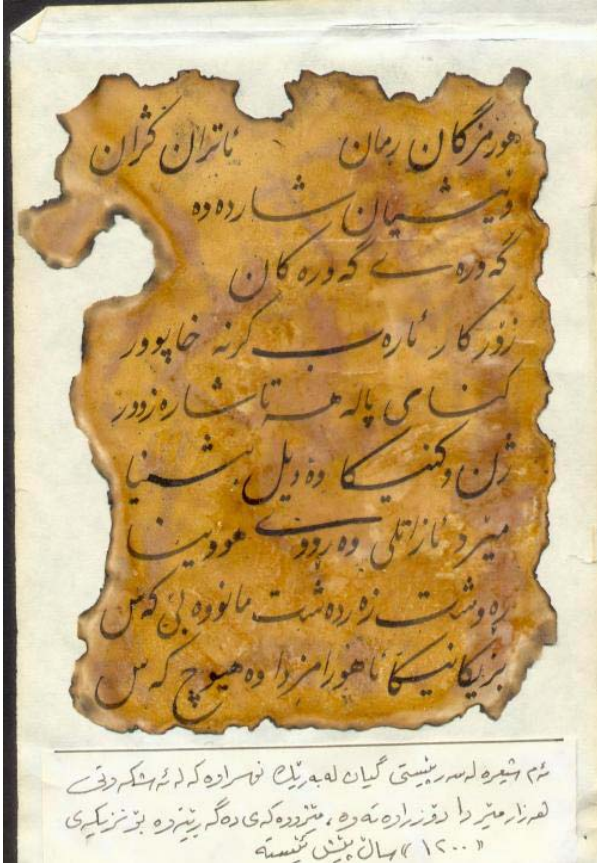 هورمزگان رمان ئاتران کژان
وێشیان شاردەوە
گەورەے گەورەکان
زۆرکار ئارەب کرنە خاپوور
کنای پالە هەتا شارەزوور
ژن و کنیکا وە دیل بشینا
مێرد ئازاتلی وە رووے هووینا
ڕەوشت زەردەشت مانووە بێ کەس
بزیکانیکا ئاهورامزدا وە هیوچ کەس
ئەم شیعرە لەسر پێستی گیان لەبەرێك نوسراوە کە لە ئەشکەوتی
هەزارمێردا دۆزراوەتەوە، مێژووەکەی دەگەڕێتەوە بۆ نزیکەی
«١٢٠٠» ساڵ پێش ئێستە